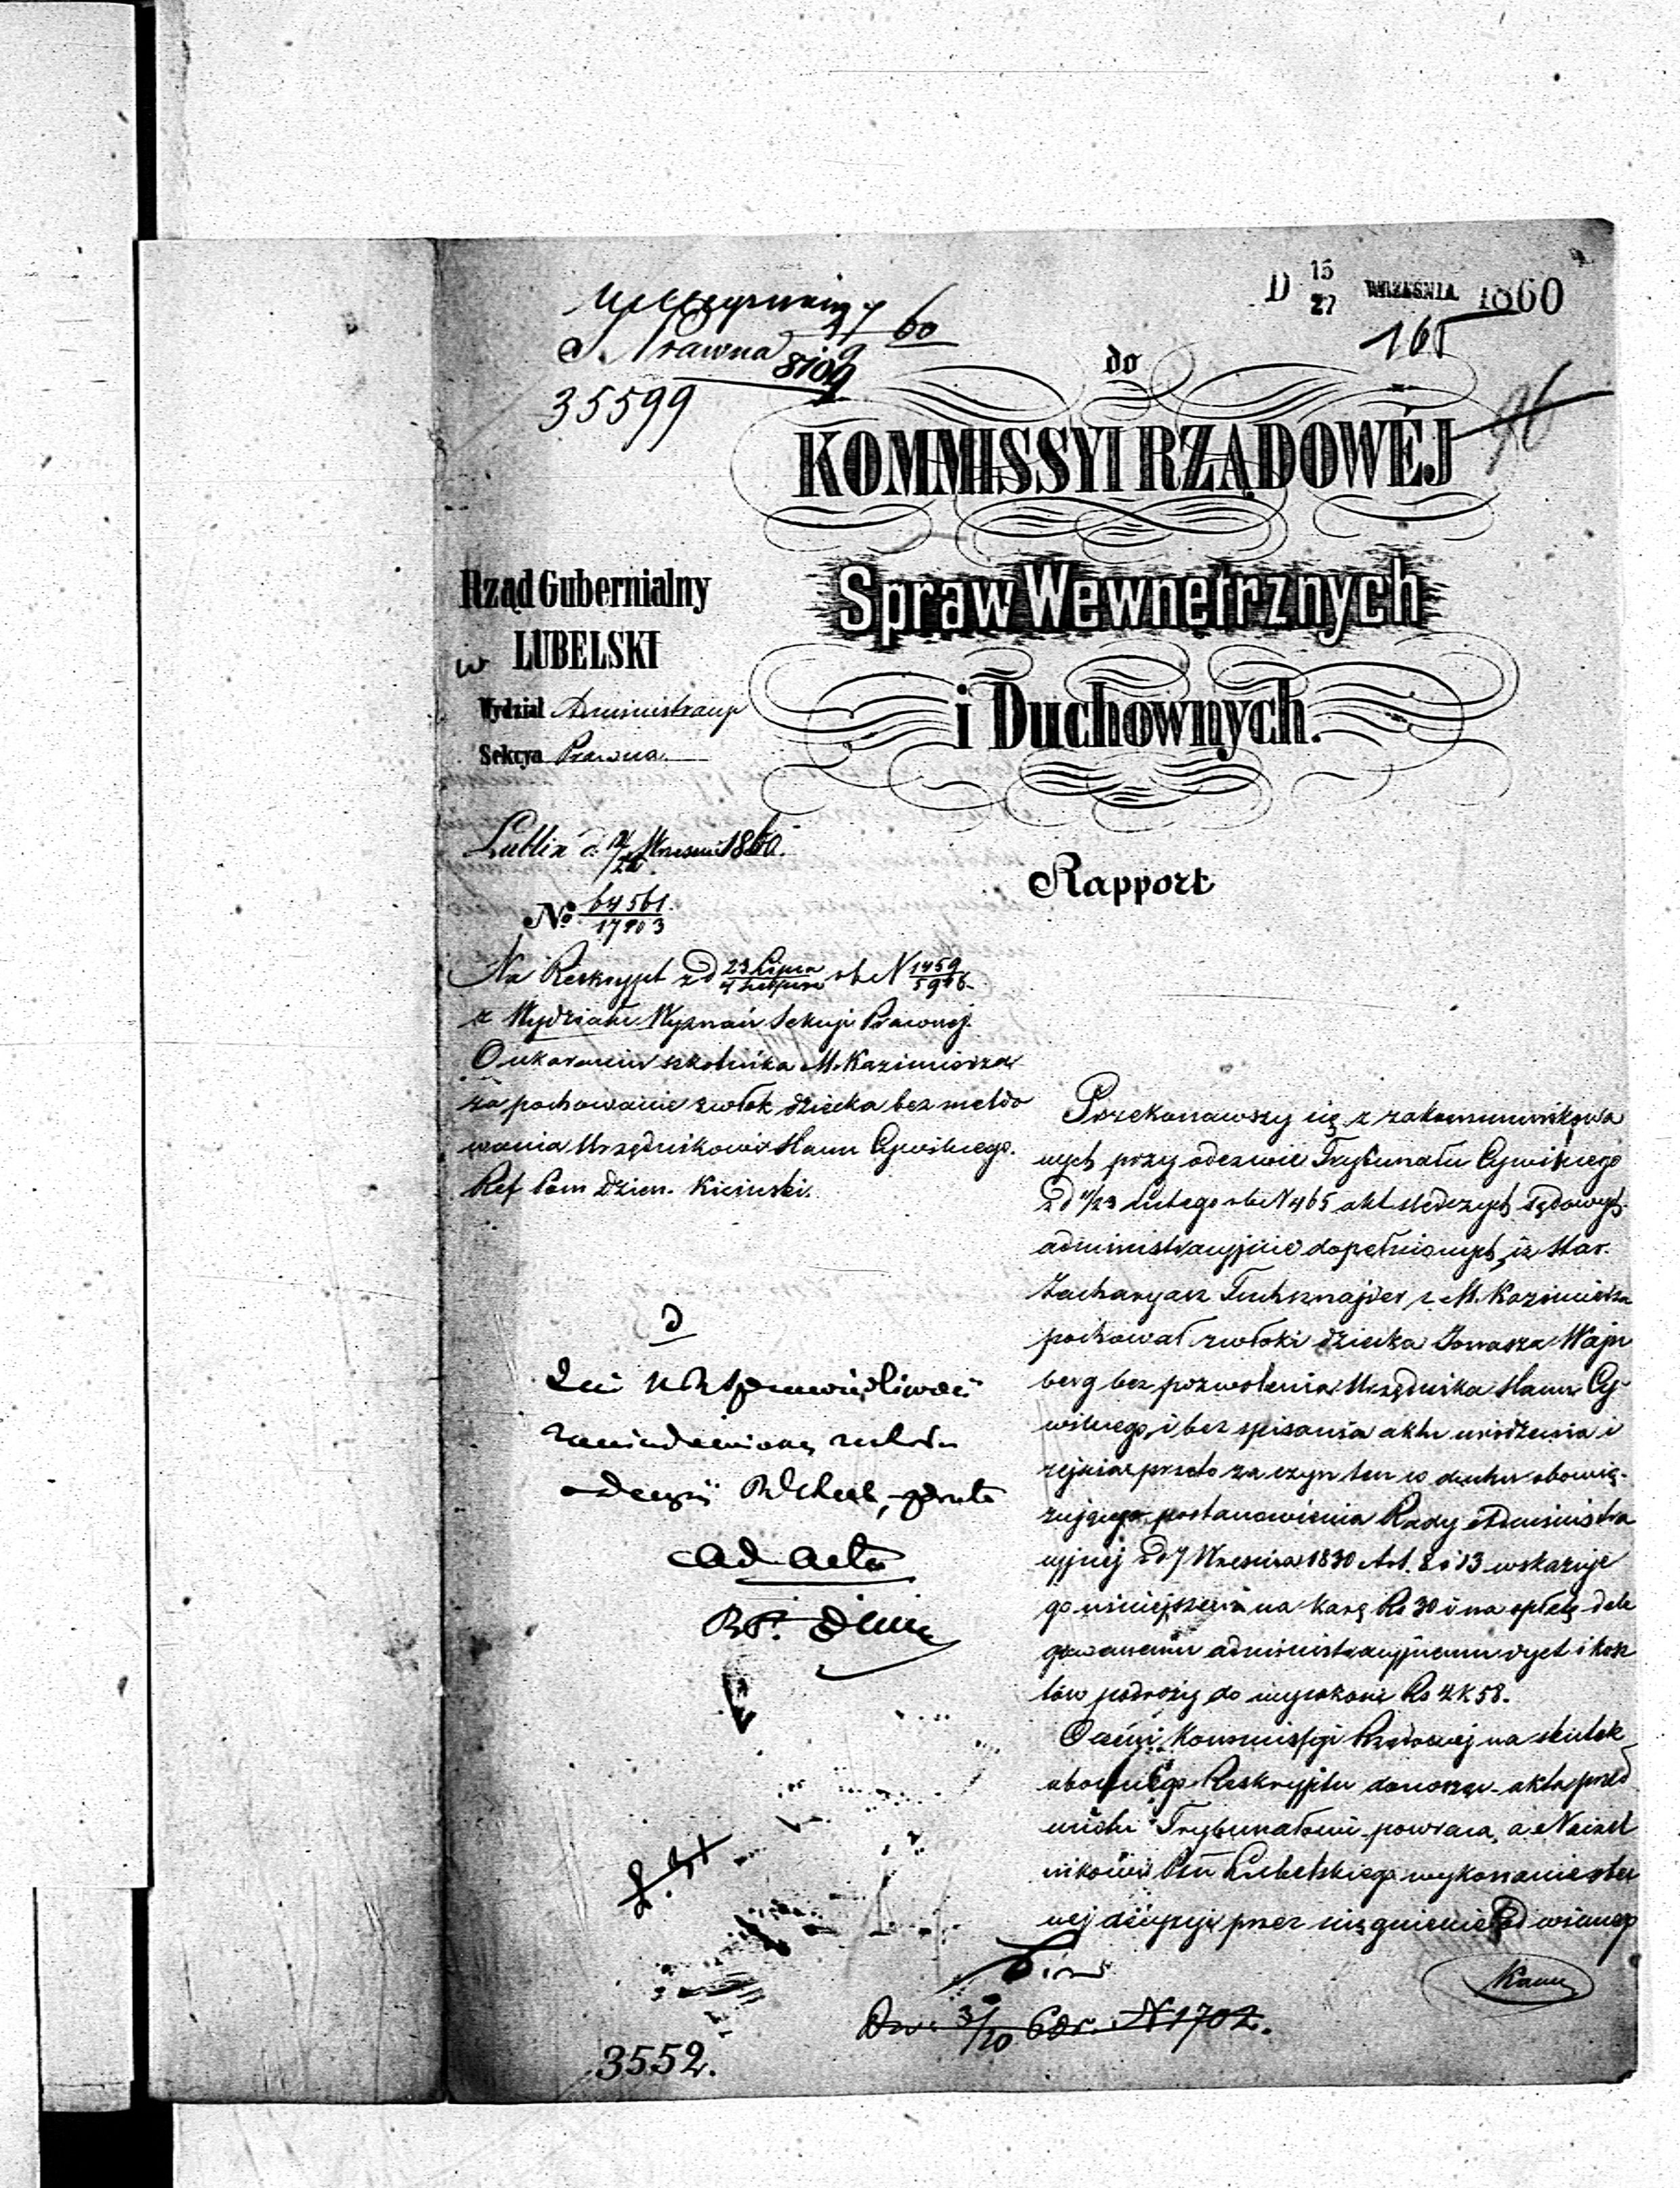 D 15/27 WRZEŚNIA 1860
165
96
S. Prawna
8109
60
35599
do
KOMMISSYI RZĄDOWÉJ
Spraw Wewnętrznych
i Duchownych.
Rząd Gubernialny
w LUBELSKI
Wydział Administracyj
Sekcya Prawna
Lublin d. /22 Wrześni 1860.
No 64561/17903
Rapport
Na Reskrypt z d 23 Lipca/4 Sierpnia rb N 1459
z Wydziału Wyznań Sekcyi Prawnej.
O ukaraniu szkolnika M. Kazimierza
za pochowanie zwłok dziecka bez meldo
wania Urzędnikowi Stanu Cywilnego.
Ref Pom Dzien. Kiciński.
Przekonawszy się z zakommunikowa
nych przy odezwie Trybunału Cywilnego
z d 11/23 Lutego rb N 465 akt śledczych sądowych
administracyjnie dopełnionych, iż Star.
Zacharyasz Tuchsznajder z M. Kazimierza
pochował zwłoki dziecka Jonasza Wajn
berg bez pozwolenia Urzędnika Stanu Cy
wilnego, i bez spisania aktu urodzenia i
zejścia przeto za czyn ten w duchu obowią-
zującego postanowienia Rady Administra
cyjnej z d 7 Września 1830 Art. 8 i 13 wskazuje
go niniejszem na karę Rs 30 i na opłatę dele
gowanemu administracyjnemu dyet i kosz
tów podróży do wysokości Rs 4 k 58.
O czém Kommissyi Rządowej na skutek
Reskryptu donosząc akta przed
miotu Trybunałowi powraca, a Naczel
nikowi Ptu Lubelskiego wykonanie
nej decyzyi przez ściągnienie od winnego
D
Gdy Sprawiedliwości
zawiadomioną została
o decyzyi, przeto
ad acta
3/10 N 1702.
3552.